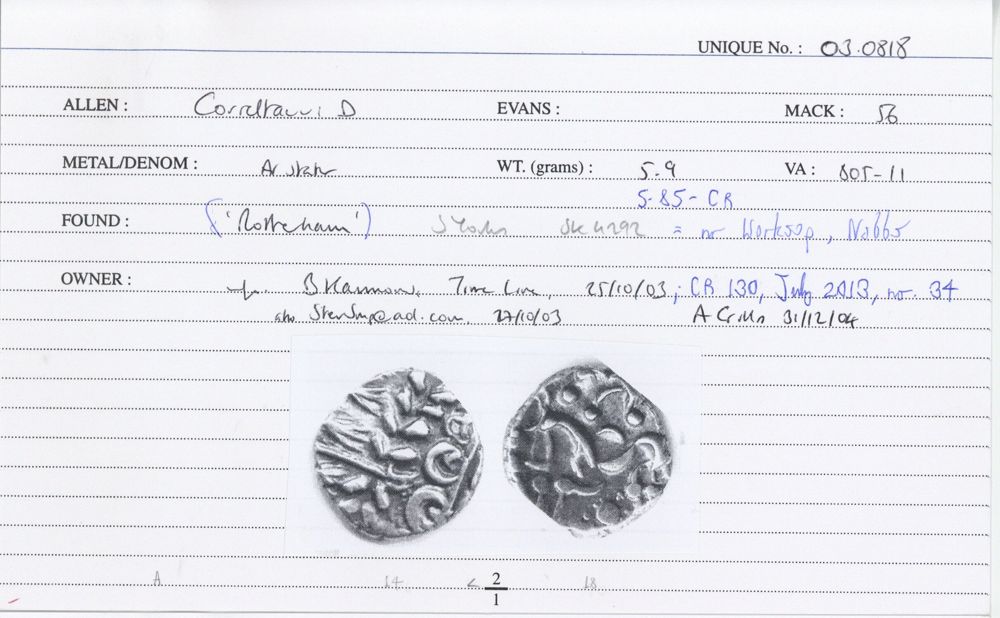 UNIQUE No. : 03.0818
ALLEN : Correltauvi D EVANS : MACK : 56
METAL/DENOM : AV stater WT. (grams) : 5.9 VA : 805-11
5.85 - CR
FOUND : ('Rotherham') S Yorks SK 4292 = nr Worksop, Notts
OWNER : B Hammond, Time Line, 25/10/03; CR 130, July 2013, no. 34
also 27/10/03 A 31/12/04
A 14 < 2/1 18